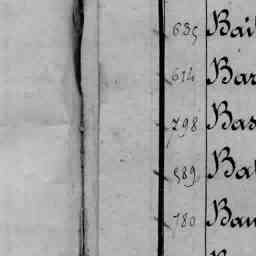 635 Bai
614 Bar
798 Bas
589 Bat
780 Bau